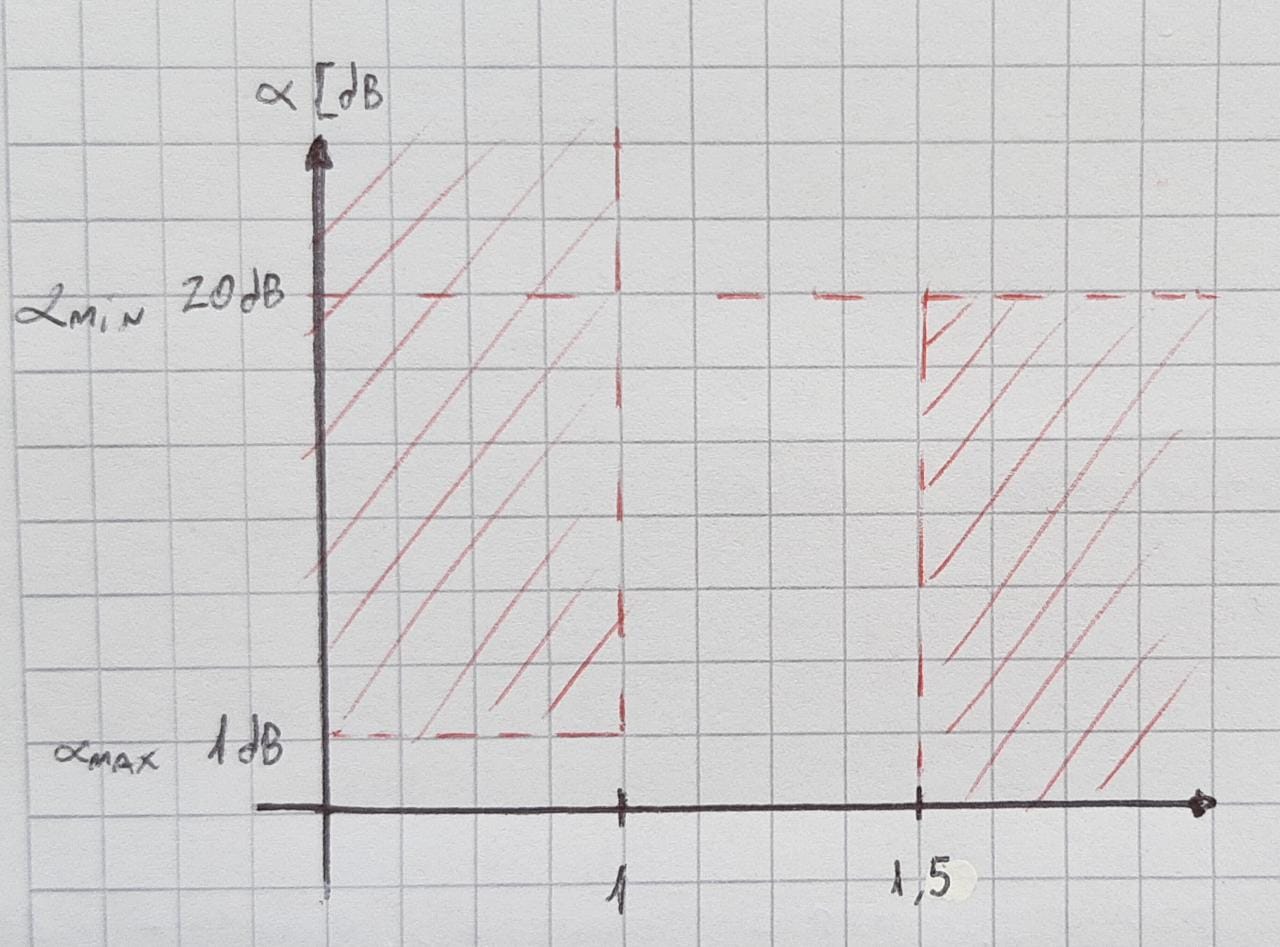 α [dB
αMiN 20dB
αMAX 1dB
1
1,5